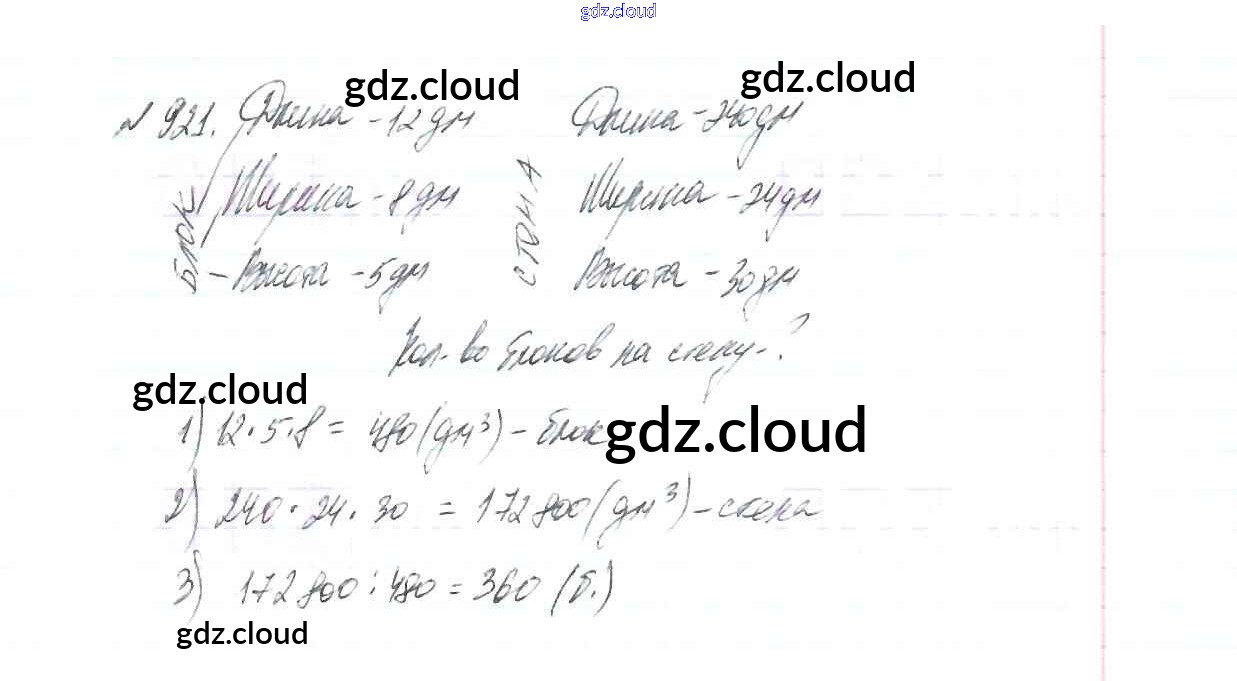 gdz.cloud
gdz.cloud
gdz.cloud
№ 921. Длина - 12 дм Длина - 240 дм
БЛОК Ширина - 8 дм СТЕНА Ширина - 24 дм
- Высота - 5 дм Высота - 30 дм
Кол-во блоков на стену - ?
gdz.cloud
1) 12 · 5 · 8 = 480 (дм³) - блок
gdz.cloud
2) 240 · 24 · 30 = 172 800 (дм³) - стена
3) 172 800 : 480 = 360 (б.)
gdz.cloud